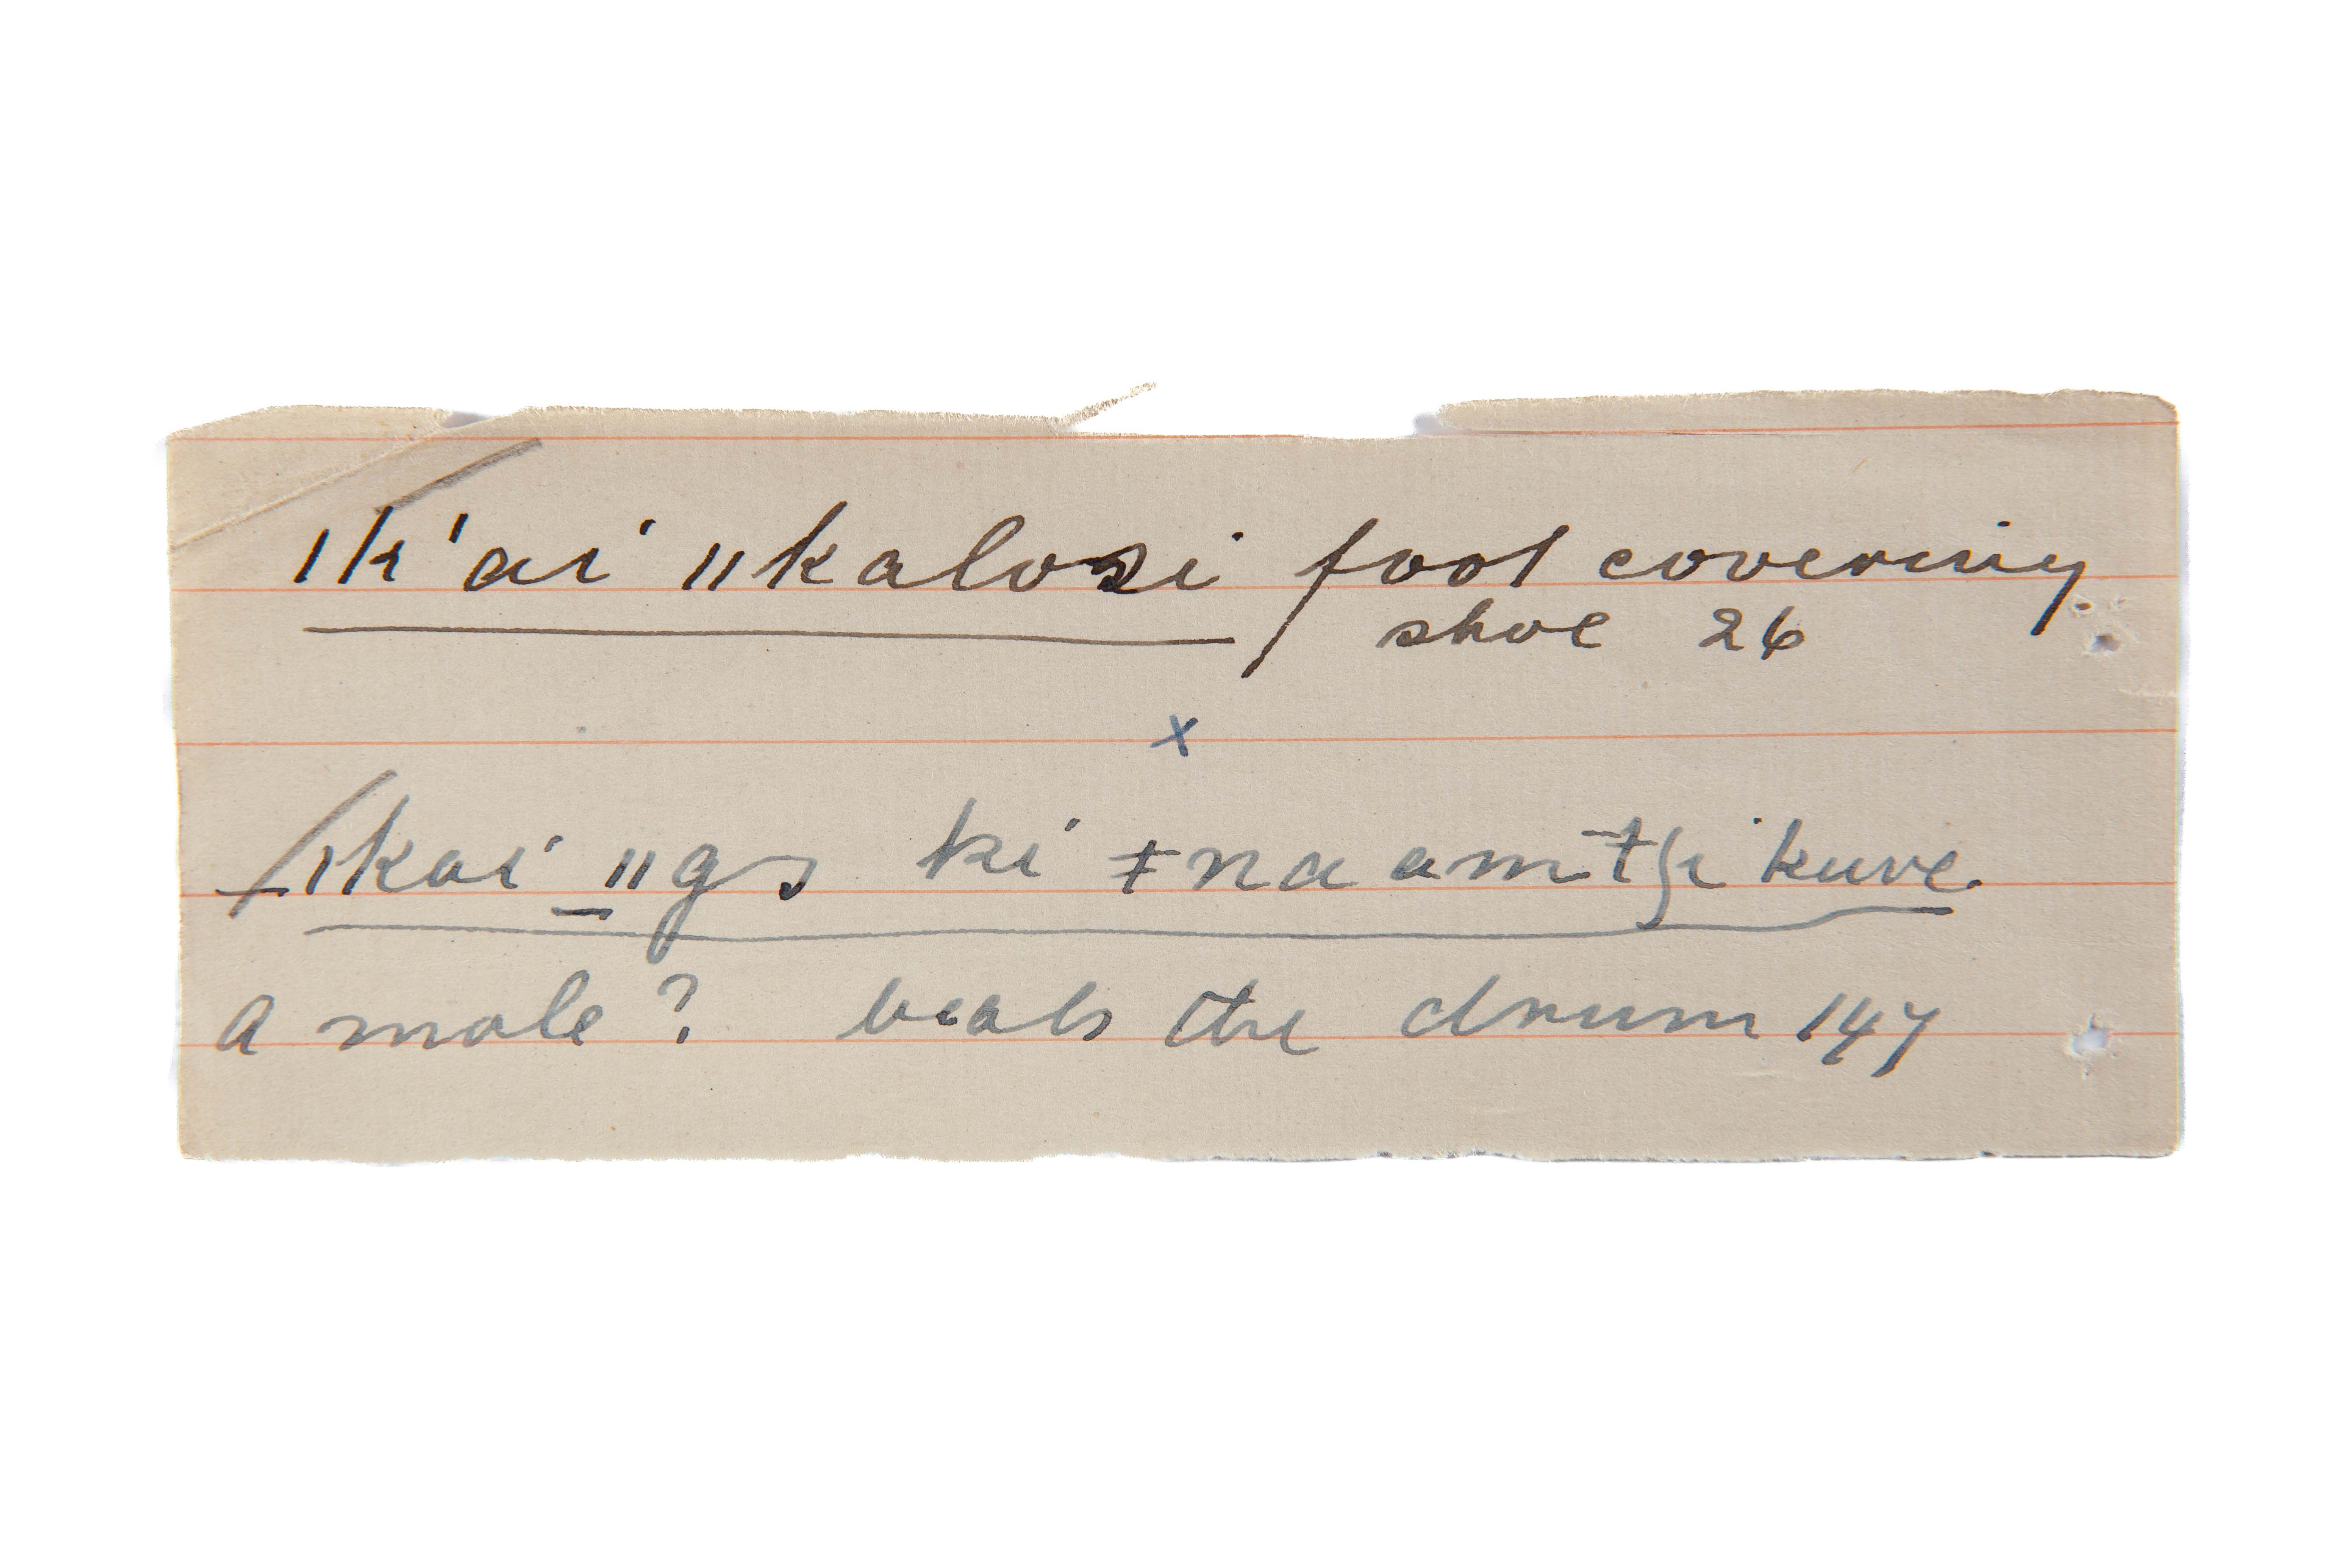 ǀk'ai ǁkalosi / foot covering
shoe 26
x
ǀkai ǁgs ki ǂna am tʃi kuve.
a mole? beats the drum 147